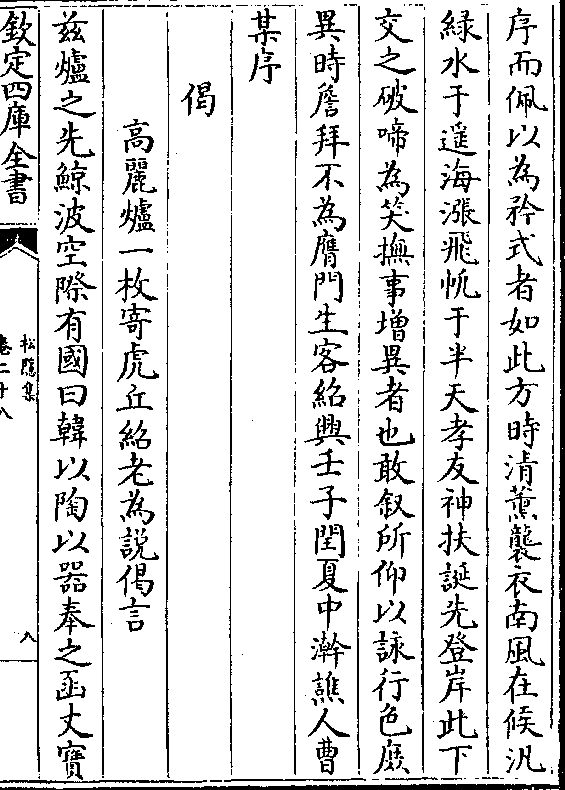 序而佩以為矜式者如此方時清薰襲衣南風在候汎
綠水于遥海漲飛帆于半天孝友神扶誕先登岸此下
交之破啼為笑撫事增異者也敢叙所仰以詠行色庶
異時詹拜不為膺門生客紹興壬子閏夏中澣譙人曹
某序
偈
高麗爐一枚寄虎丘紹老為説偈言
兹爐之先鯨波空際有國曰韓以陶以器奉之函丈寳
欽定四庫全書
松隱集
卷二十八
八